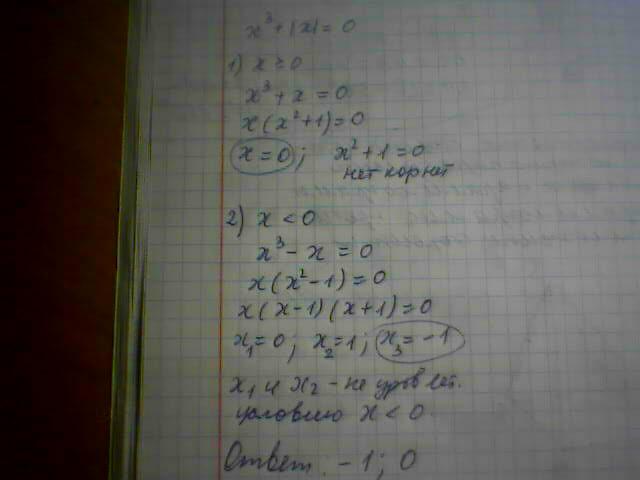 x³+|x|=0
1) x≥0
x³+x=0
x(x²+1)=0
x=0; x²+1=0
нет корней
2) x<0
x³-x=0
x(x²-1)=0
x(x-1)(x+1)=0
x₁=0; x₂=1; x₃=-1
x₁ и x₂ - не удовлет.
условию x<0
Ответ: -1; 0